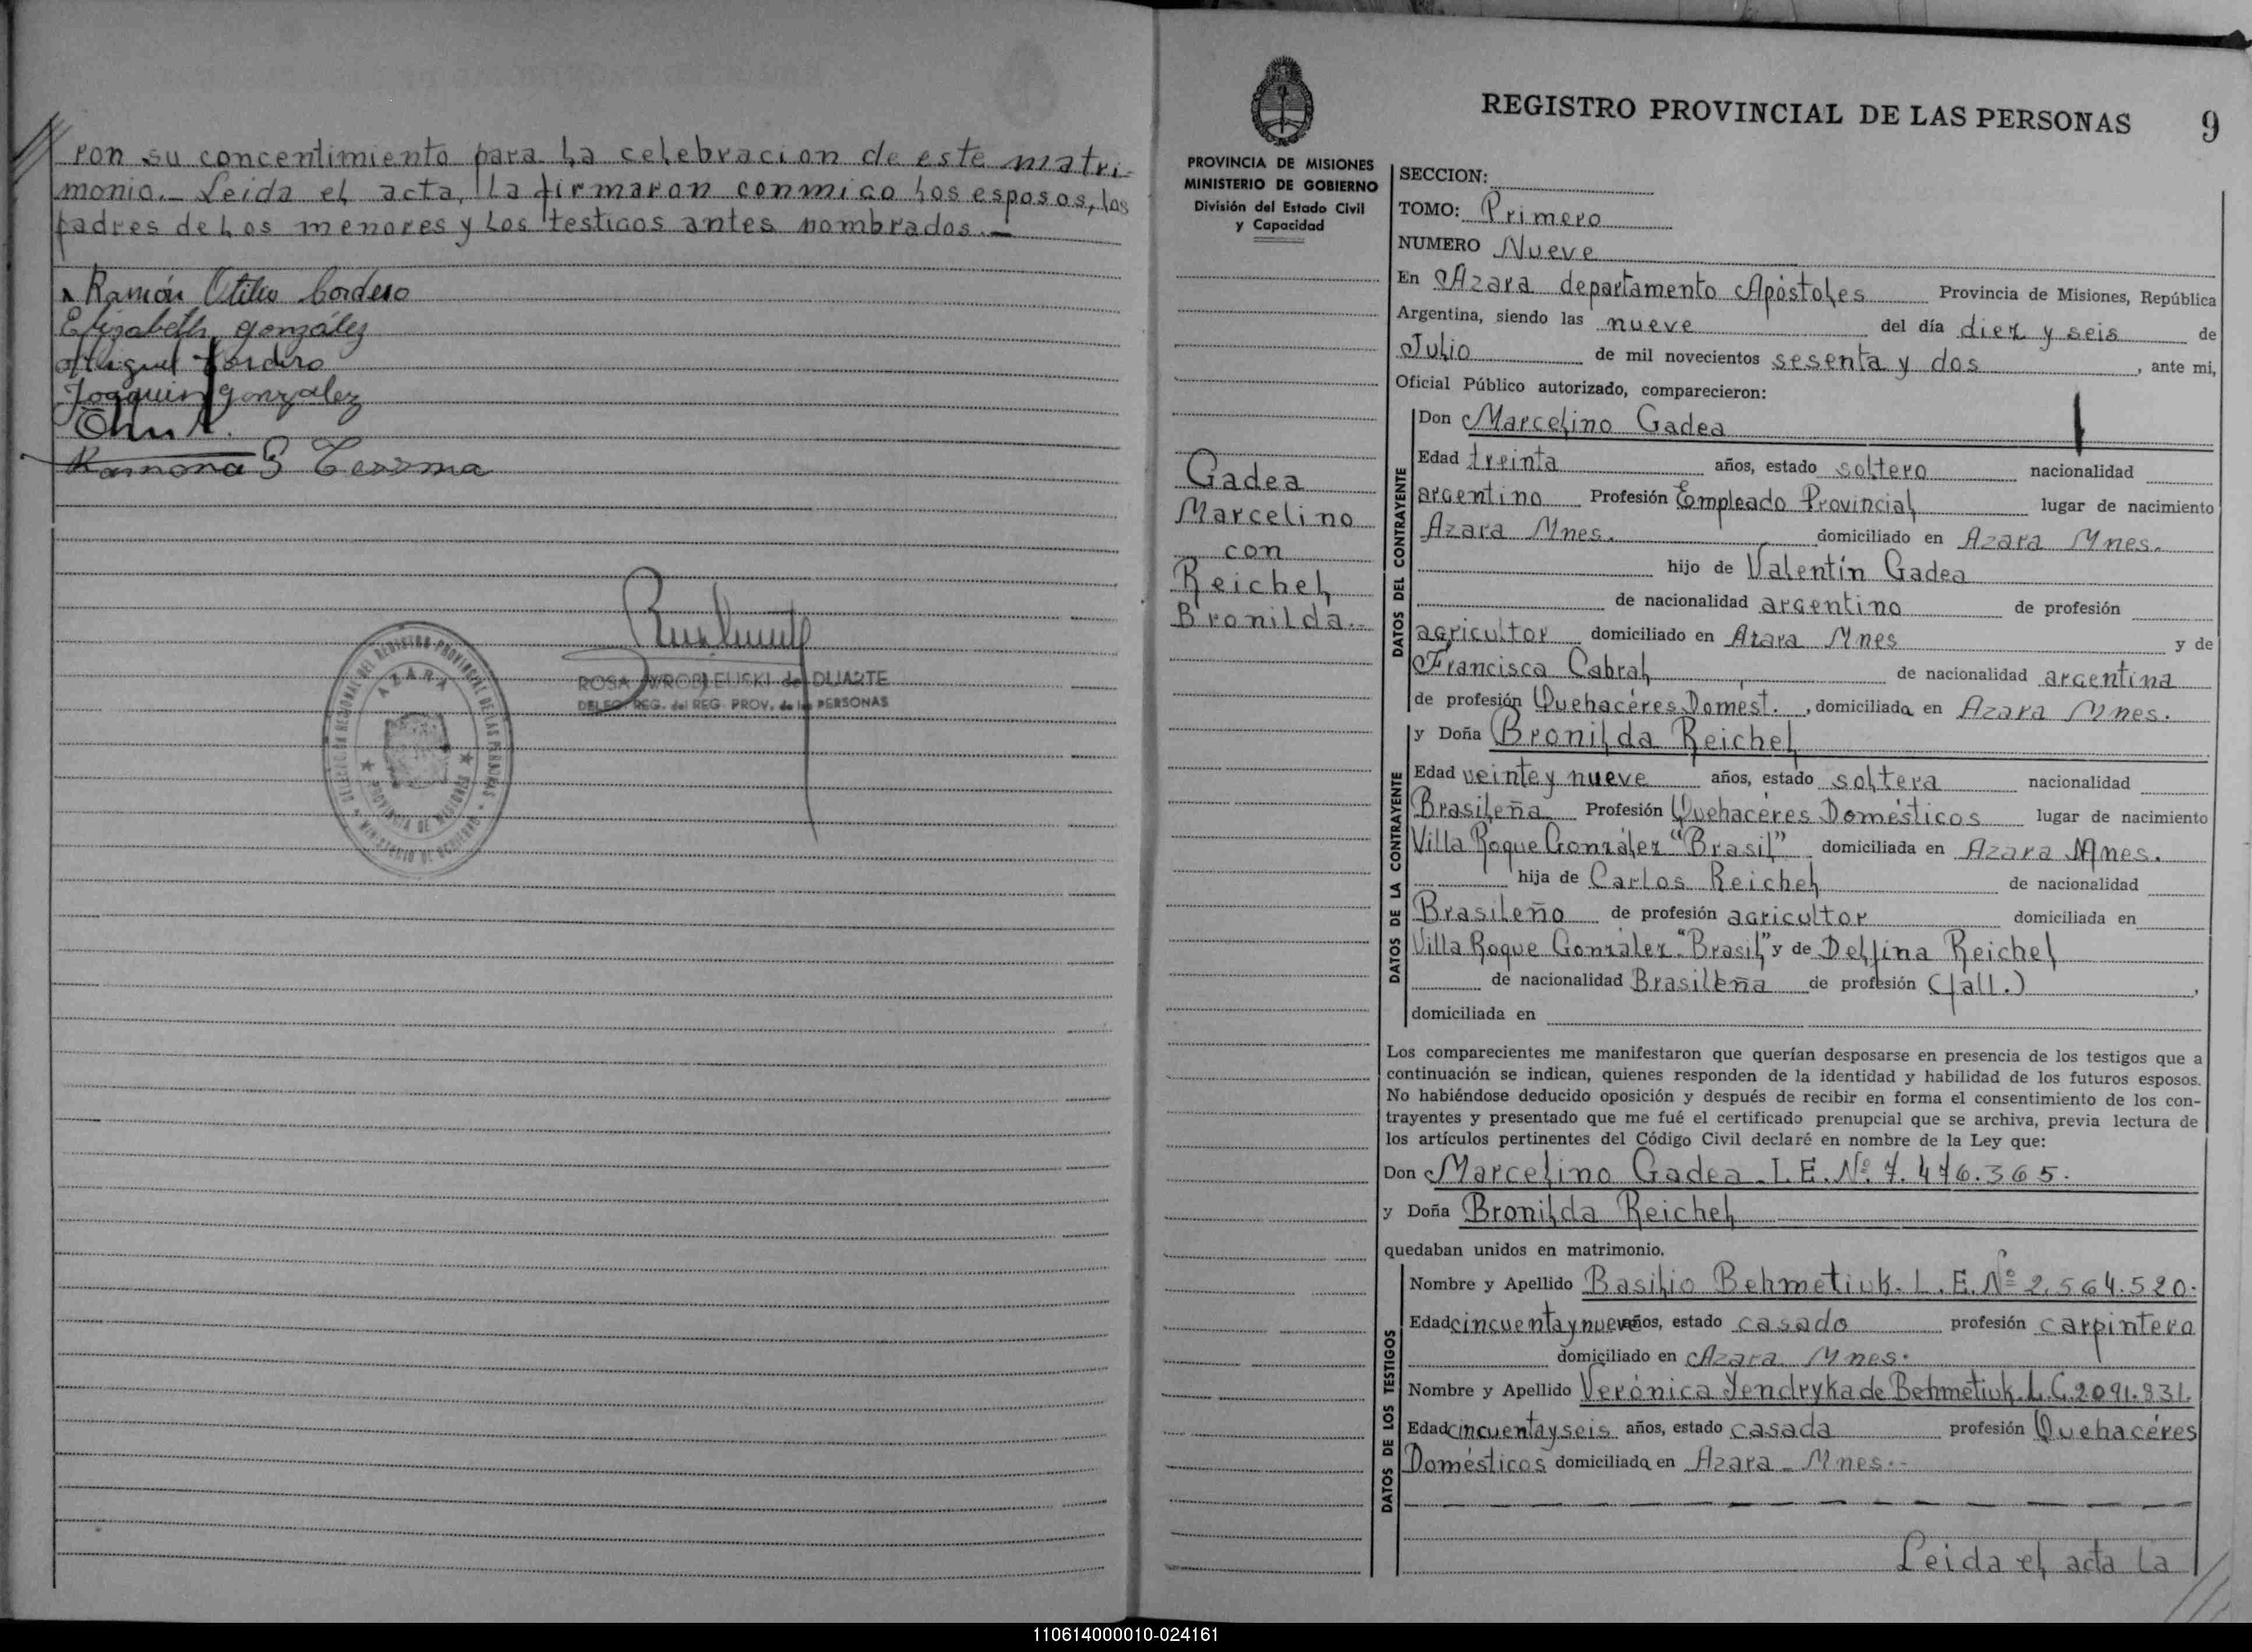 ron su concentimiento para la celebracion de este matri-
monio.- Leida el acta, la firmaron conmigo los esposos, los
padres de los menores y los testigos antes nombrados.-
Ramón Otilio Cordero
Elizabeth gonzález
Miguel Cordero
Joaquin gonzalez
Ramona
ROSA WROBLEUSKI de DUARTE
DELEG. REG. del REG. PROV. de las PERSONAS
DELEGACION REGIONAL DEL REGISTRO PROVINCIAL DE LAS PERSONAS
AZARA
PROVINCIA DE MISIONES
MINISTERIO DE GOBIERNO
REGISTRO PROVINCIAL DE LAS PERSONAS 9
PROVINCIA DE MISIONES
MINISTERIO DE GOBIERNO
División del Estado Civil
y Capacidad
Gadea
Marcelino
con
Reichel
Bronilda.-
SECCION:
TOMO: Primero
NUMERO Nueve
En Azara departamento Apóstoles Provincia de Misiones, República
Argentina, siendo las nueve del día diez y seis de
Julio de mil novecientos sesenta y dos, ante mi,
Oficial Público autorizado, comparecieron:
DATOS DEL CONTRAYENTE
Don Marcelino Gadea
Edad treinta años, estado soltero nacionalidad
argentino Profesión Empleado Provincial lugar de nacimiento
Azara Mnes. domiciliado en Azara Mnes.
hijo de Valentín Gadea
de nacionalidad argentino de profesión
agricultor domiciliado en Azara Mnes y de
Francisca Cabral de nacionalidad argentina
de profesión Quehacéres Domest., domiciliada en Azara Mnes.
DATOS DE LA CONTRAYENTE
y Doña Bronilda Reichel
Edad veinte y nueve años, estado soltera nacionalidad
Brasileña Profesión Quehacéres Domésticos lugar de nacimiento
Villa Roque González "Brasil" domiciliada en Azara Mnes.
hija de Carlos Reichel de nacionalidad
Brasileño de profesión agricultor domiciliada en
Villa Roque González "Brasil" y de Delfina Reichel
de nacionalidad Brasileña de profesión (fall.),
domiciliada en
Los comparecientes me manifestaron que querían desposarse en presencia de los testigos que a
continuación se indican, quienes responden de la identidad y habilidad de los futuros esposos.
No habiéndose deducido oposición y después de recibir en forma el consentimiento de los con-
trayentes y presentado que me fué el certificado prenupcial que se archiva, previa lectura de
los artículos pertinentes del Código Civil declaré en nombre de la Ley que:
Don Marcelino Gadea L.E. Nº 7.476.365.
y Doña Bronilda Reichel
quedaban unidos en matrimonio.
DATOS DE LOS TESTIGOS
Nombre y Apellido Basilio Behmetiuk. L.E. Nº 2.564.520.
Edad cincuenta y nueve años, estado casado profesión carpintero
domiciliado en Azara Mnes.
Nombre y Apellido Verónica Yendryka de Behmetiuk. L.C. 2091.831.
Edad cincuenta y seis años, estado casada profesión Quehacéres
Domésticos domiciliada en Azara - Mnes.-
Leida el acta la
110614000010-024161